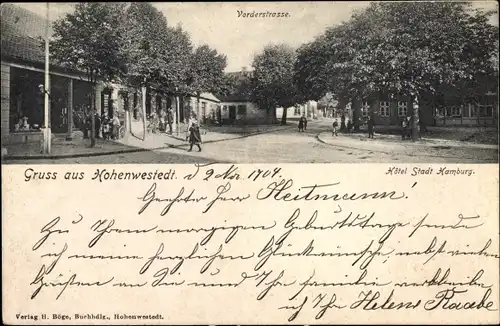 Vorderstrasse.
Gruss aus Hohenwestedt. d 2 Nov. 1904.
Hôtel Stadt Hamburg.
Geehrter Herr Heitmann!
Zu Ihrem morgigen Geburtstage sende
ich meine herzlichen Glückwünsche, nebst vielen
Grüßen an Sie und Ihre Familie verbleibe
ich Ihre Helene Raabe
Verlag H. Böge, Buchhdlg., Hohenwestedt.